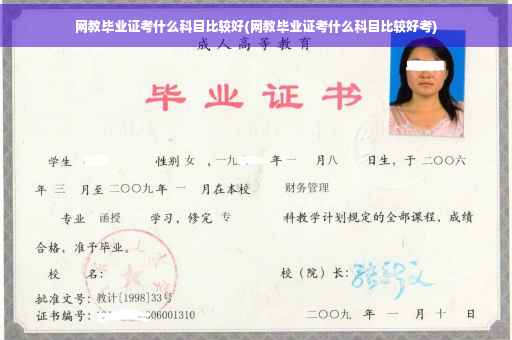 网教毕业证考什么科目比较好(网教毕业证考什么科目比较好考)
成人高等教育
毕业证书
学生 性别 女 ,一九 年一 月八 日生，于二〇〇六
年 三 月至二〇〇九年 一 月在本校 财务管理
专业 函授 学习，修完 专 科教学计划规定的全部课程，成绩
合格，准予毕业。
校 名： 校（院）长：
批准文号：教计[1998]33号
证书编号： 06001310 二〇〇九 年 一 月 十 日